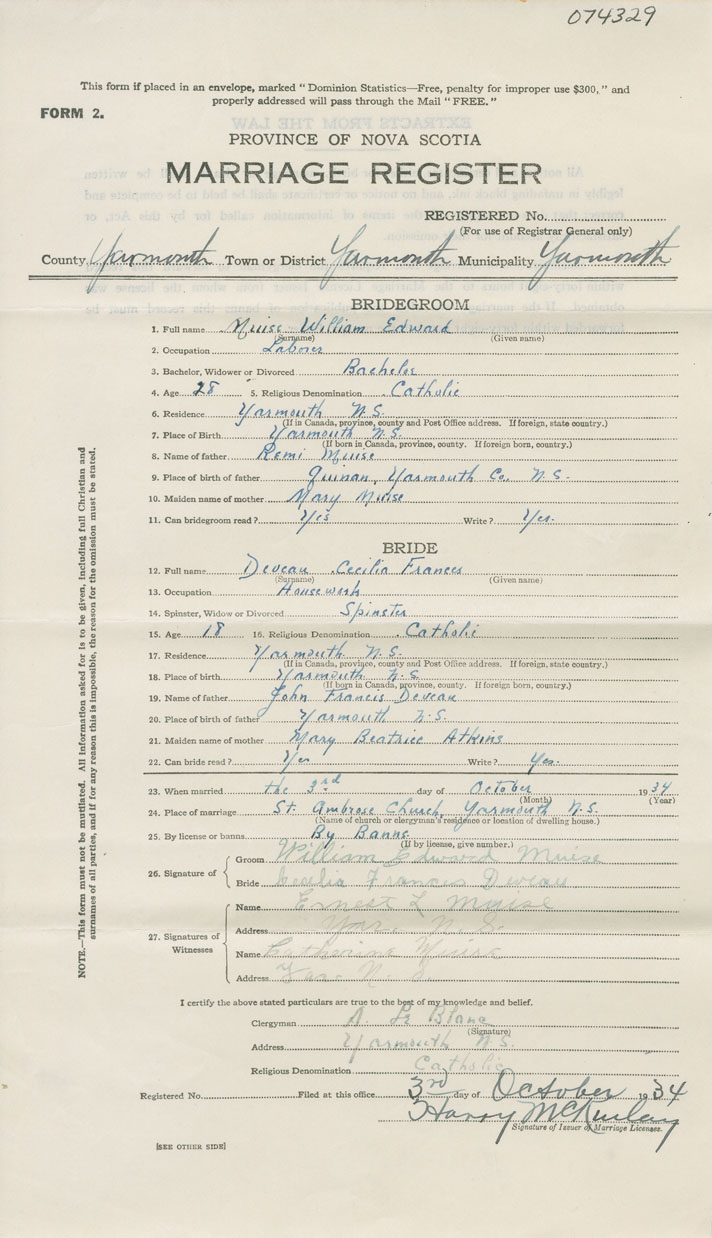 074329
This form if placed in an envelope, marked "Dominion Statistics—Free, penalty for improper use $300," and
properly addressed will pass through the Mail "FREE."
FORM 2.
PROVINCE OF NOVA SCOTIA
MARRIAGE REGISTER
REGISTERED No.
(For use of Registrar General only)
County Yarmouth Town or District Yarmouth Municipality Yarmouth
BRIDEGROOM
1. Full name Muise William Edward
(Surname) (Given name)
2. Occupation Laborer
3. Bachelor, Widower or Divorced Bachelor
4. Age 28 5. Religious Denomination Catholic
6. Residence Yarmouth N.S.
(If in Canada, province, county and Post Office address. If foreign, state country.)
7. Place of Birth Yarmouth N.S.
(If born in Canada, province, county. If foreign born, country.)
8. Name of father Remi Muise
9. Place of birth of father Quinan, Yarmouth Co. N.S.
10. Maiden name of mother Mary Muise
11. Can bridegroom read? Yes Write? Yes.
BRIDE
12. Full name Deveau Cecilia Frances
(Surname) (Given name)
13. Occupation Housework
14. Spinster, Widow or Divorced Spinster
15. Age 18 16. Religious Denomination Catholic
17. Residence Yarmouth N.S.
(If in Canada, province, county and Post Office address. If foreign, state country.)
18. Place of birth Yarmouth N.S.
(If born in Canada, province, county. If foreign born, country.)
19. Name of father John Francis Deveau
20. Place of birth of father Yarmouth N.S.
21. Maiden name of mother Mary Beatrice Atkins
22. Can bride read? Yes Write? Yes.
23. When married the 3rd day of October 1934
(Month) (Year)
24. Place of marriage St. Ambrose Church, Yarmouth N.S.
(Name of church or clergyman's residence or location of dwelling house.)
25. By license or banns By Banns
(If by license, give number.)
26. Signature of
Groom William Edward Muise
Bride Cecilia Frances Deveau
27. Signatures of Witnesses
Name Ernest L Muise
Address Yar. N.S.
Name Catherine Muise
Address Yar. N.S.
I certify the above stated particulars are true to the best of my knowledge and belief.
Clergyman A. Le Blanc
(Signature)
Address Yarmouth N.S.
Religious Denomination Catholic
Registered No. Filed at this office 3rd day of October 1934
Harry McKinlay
Signature of Issuer of Marriage Licenses.
[SEE OTHER SIDE]
NOTE.—This form must not be mutilated. All information asked for is to be given, including full Christian and
surnames of all parties, and if for any reason this is impossible, the reason for the omission must be stated.